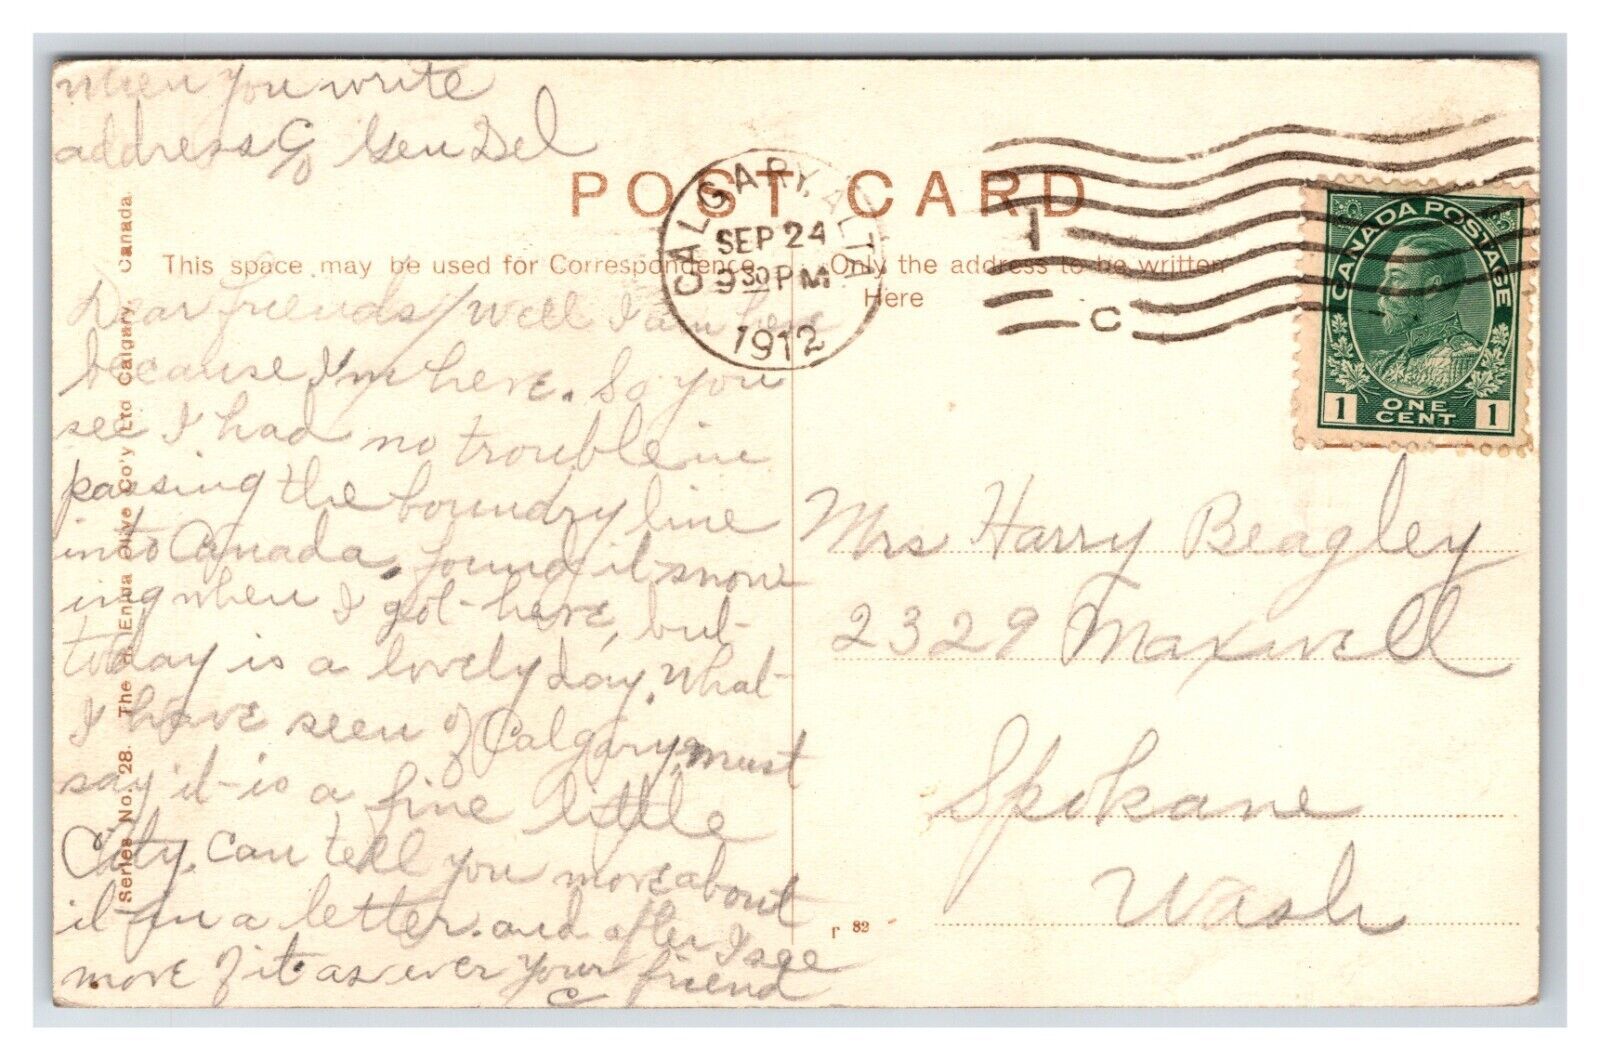 when you write
address c/o Gen Del
POST CARD
CALGARY, ALTA
SEP 24
9 30 PM
1912
1
C
CANADA POSTAGE
1 ONE CENT 1
This space may be used for Correspondence
Only the address to be written
Here
Dear friends/ Well I am here
because I'm here. So you
see I had no trouble in
passing the boundry line
into Canada, found it snow
ing when I got here, but
today is a lovely day. What
I have seen of Calgary, must
say it is a fine little
City. Can tell you more about
it in a letter. and after I see
more of it as ever your friend
C
Mrs Harry Beagley
2329 Maxwell
Spokane
Wash
r 82
Series No. 28. The Olive Co'y Ltd Calgary, Canada